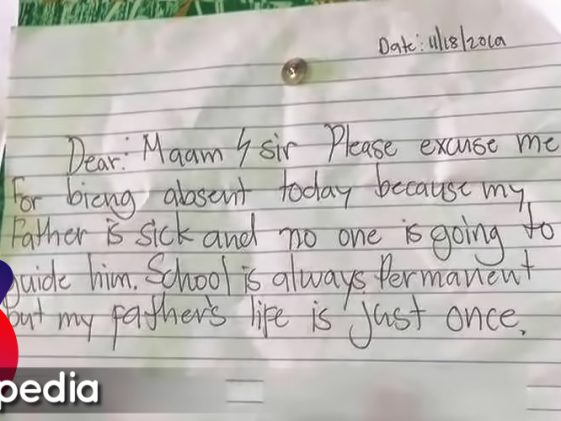 Date: 11/18/2019
Dear: Maam / sir Please excuse me
For bieng absent today because my
Father is sick and no one is going to
guide him. School is always Permanent
but my father's life is just once.
pedia